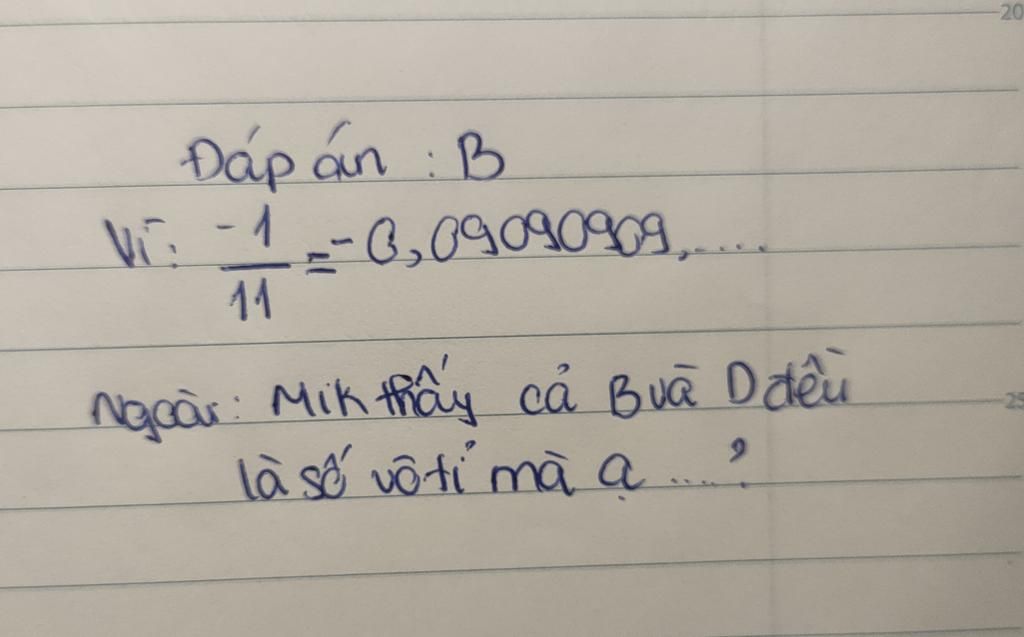 20
Đáp án : B
Vì: -1/11 = -0,09090909,.....
Ngoài: Mik thấy cả B và D đều
25
là số vô tỉ mà ạ ....?